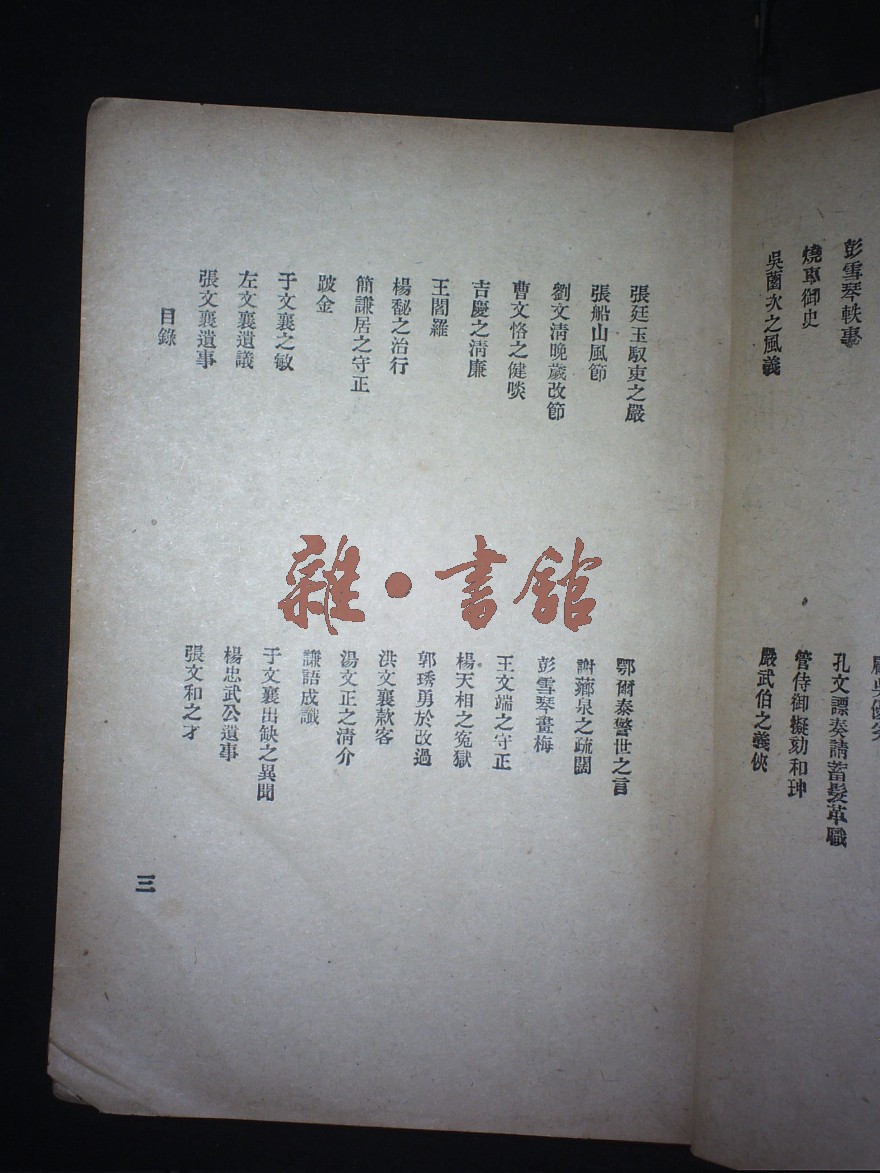 彭雪琴軼事
燒車御史
吳薗次之風義
孔文諤奏請蓄髮革職
管侍御擬劾和珅
嚴武伯之義俠
張廷玉馭吏之嚴
張船山風節
劉文清晚歲改節
曹文恪之健啖
吉慶之清廉
王閻羅
楊馝之治行
簡謙居之守正
跛金
于文襄之敏
左文襄遺議
張文襄遺事
鄂爾泰警世之言
謝薌泉之疏闊
彭雪琴畫梅
王文端之守正
楊天相之冤獄
郭琇勇於改過
洪文襄款客
湯文正之清介
謙語成讖
于文襄出缺之異聞
楊忠武公遺事
張文和之才
目錄
三
雜·書館